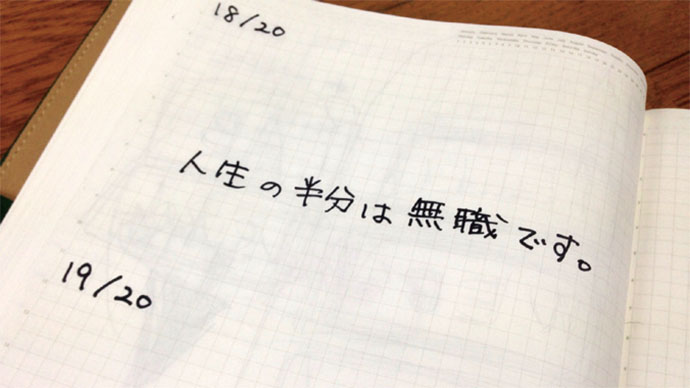 18/20
人生の半分は無職です。
19/20